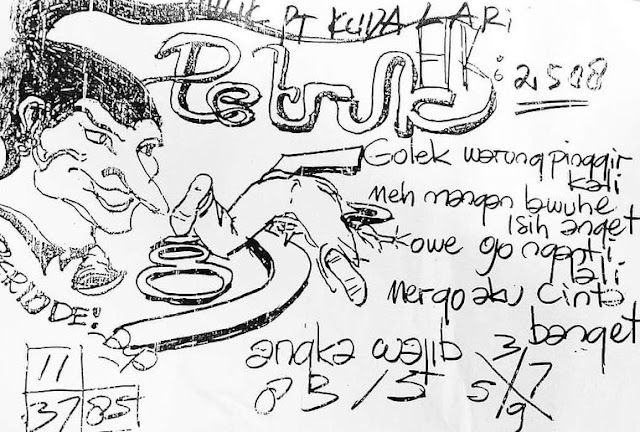 PT KUDA LARI
Petruk
EK: 2508
Golek warung pinggir
kali
Meh mangan awuhe
Isih anget
kowe go nganti
lali
Mergo aku cinta
banget
PERIODE!
angka wajib
8 3 / 5
3
5 7
9
11
37 85